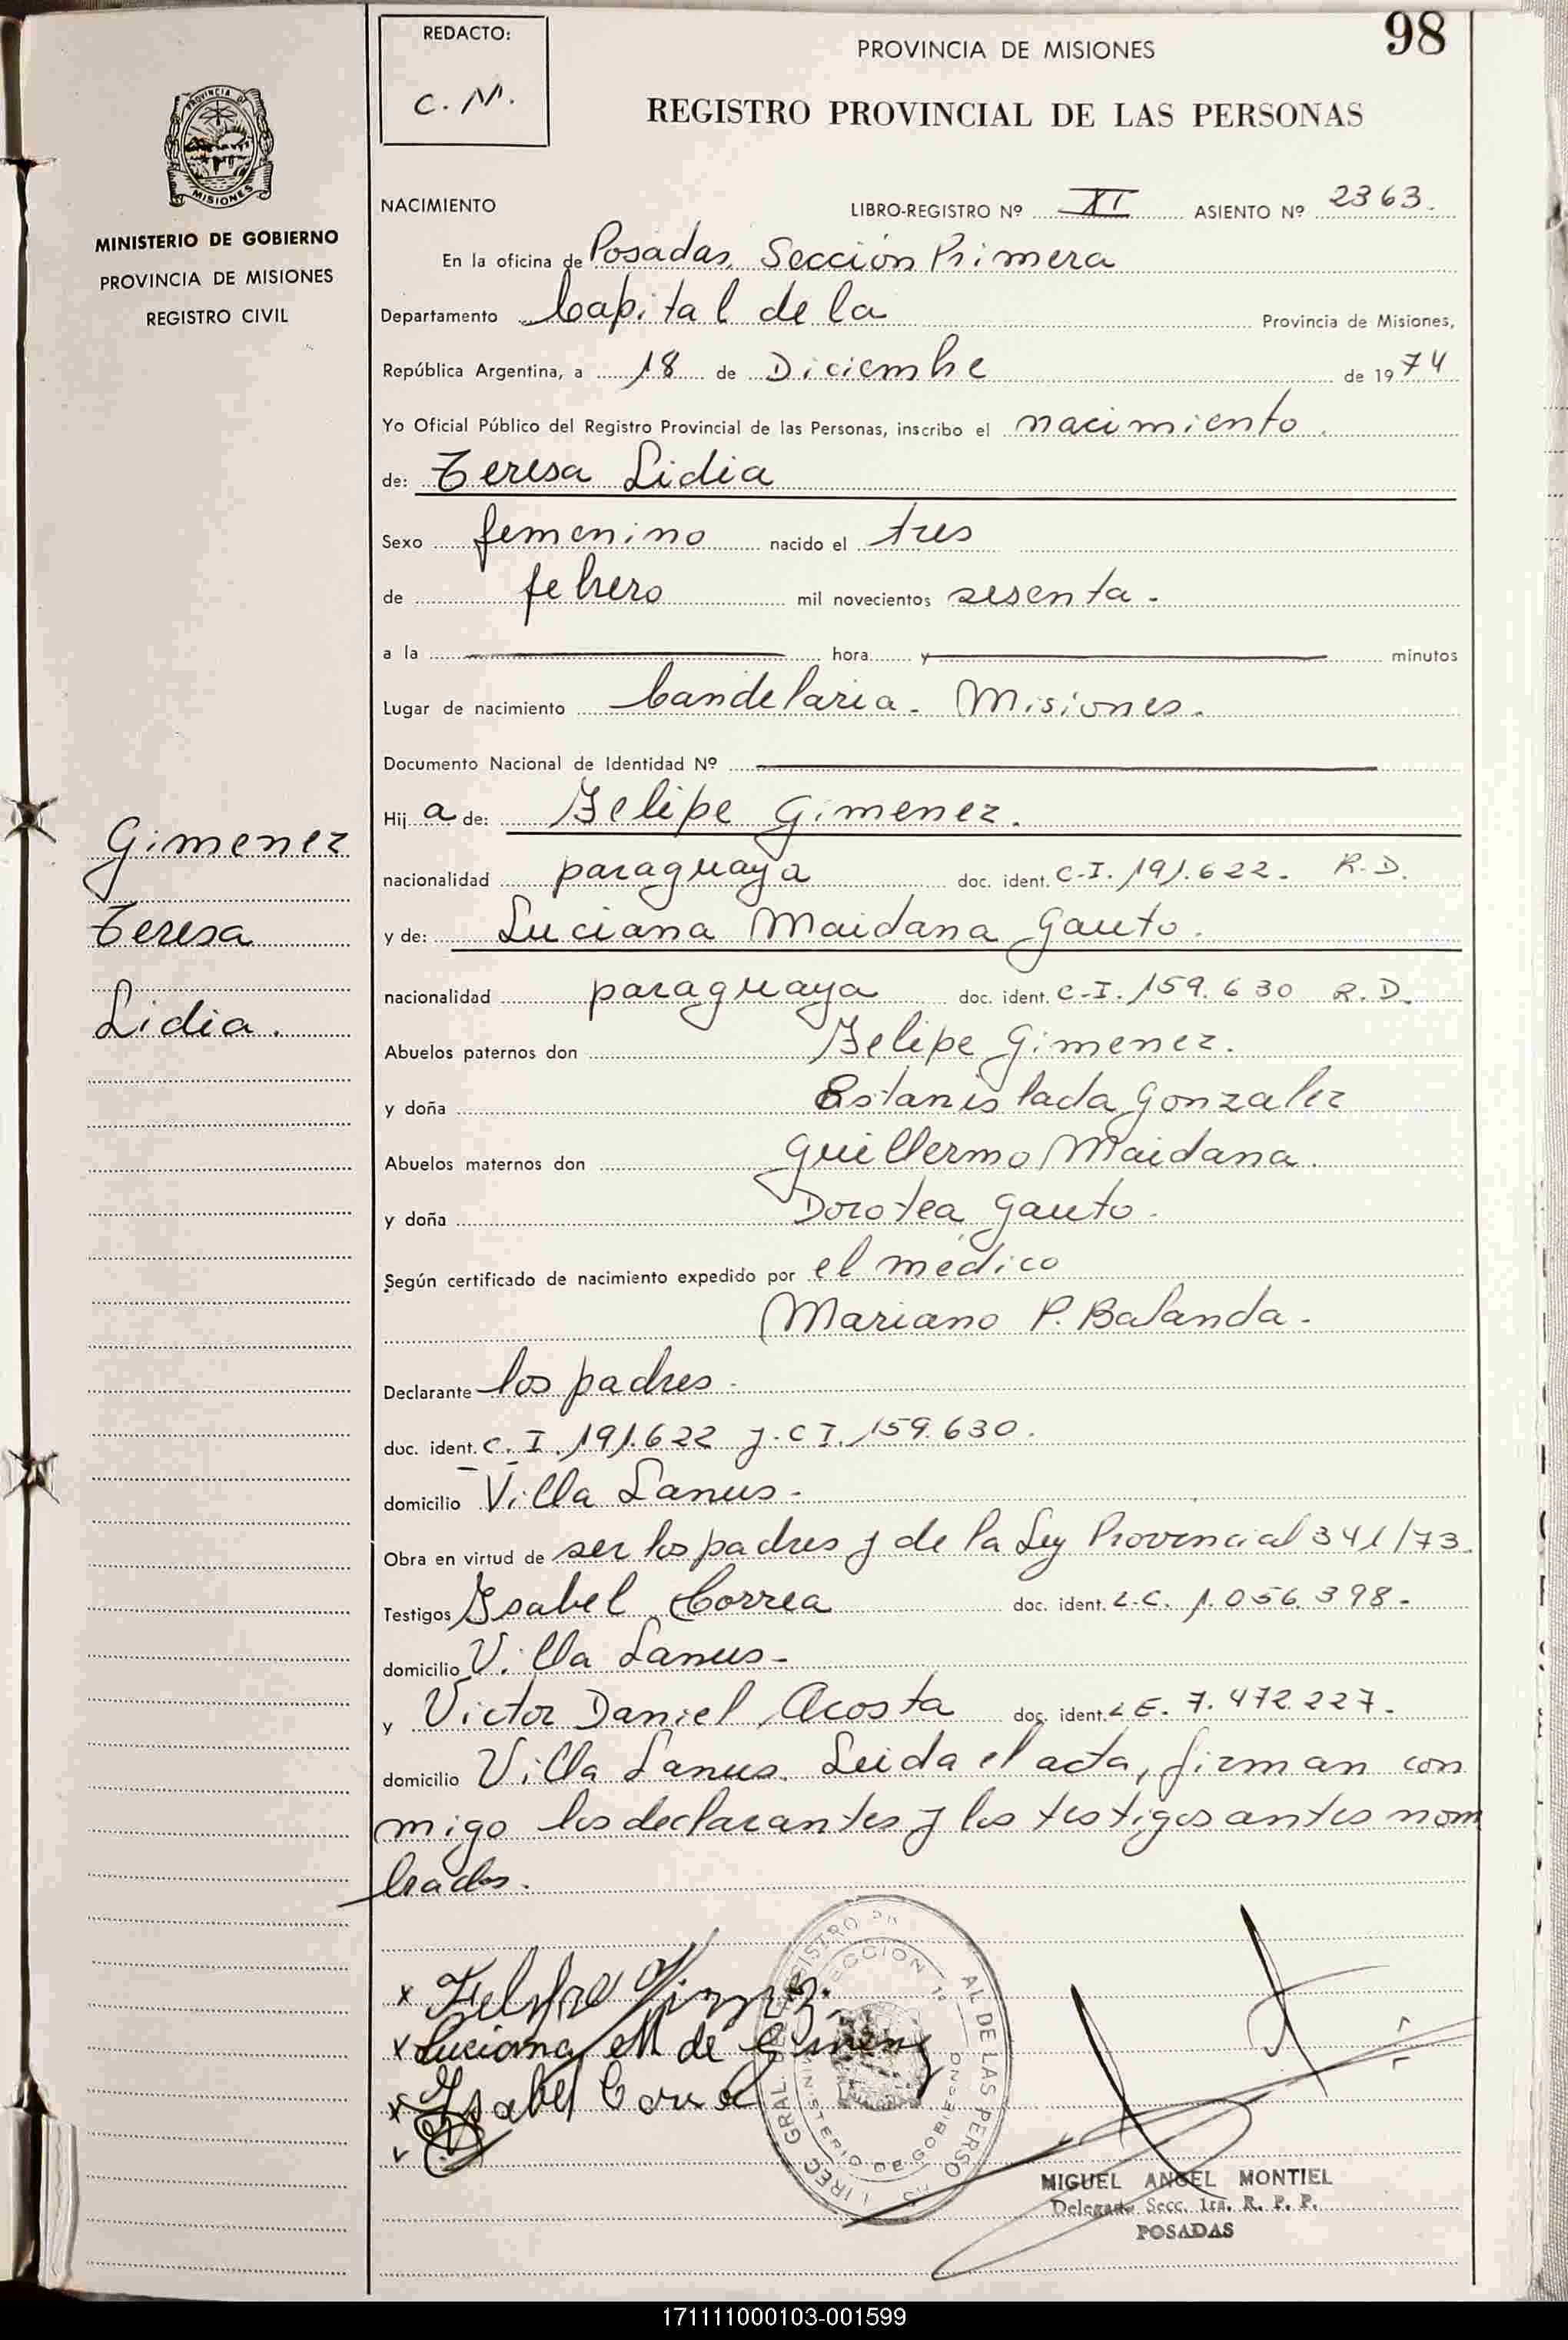 REDACTO:
C. M.
PROVINCIA DE MISIONES
98
REGISTRO PROVINCIAL DE LAS PERSONAS
PROVINCIA DE
MISIONES
MINISTERIO DE GOBIERNO
PROVINCIA DE MISIONES
REGISTRO CIVIL
Gimenez
Teresa
Lidia.
NACIMIENTO LIBRO-REGISTRO Nº XI ASIENTO Nº 2363.
En la oficina de Posadas, Sección Primera
Departamento Capital de la Provincia de Misiones,
República Argentina, a 18 de Diciembre de 1974
Yo Oficial Público del Registro Provincial de las Personas, inscribo el nacimiento.
de: Teresa Lidia
Sexo femenino nacido el tres
de febrero mil novecientos sesenta.-
a la hora y minutos
Lugar de nacimiento Candelaria - Misiones.
Documento Nacional de Identidad Nº
Hij a de: Felipe Gimenez.
nacionalidad paraguaya doc. ident. C.I. 191.622. R.D.
y de: Luciana Maidana Gauto.
nacionalidad paraguaya doc. ident. C.I. 159.630 R.D.
Abuelos paternos don Felipe Gimenez.
y doña Estanislada Gonzalez
Abuelos maternos don Guillermo Maidana.
y doña Dorotea Gauto.
Según certificado de nacimiento expedido por el médico
Mariano P. Balanda.
Declarante los padres.
doc. ident. C. I. 191.622 y. C I. 159.630.
domicilio Villa Lanus.
Obra en virtud de ser los padres y de la Ley Provincial 341/73.
Testigos Ysabel Correa doc. ident. L.C. 1.056.398.
domicilio Villa Lanus-
y Victor Daniel Acosta doc. ident. L E. 7.472.227.
domicilio Villa Lanus. Leida el acta, firman con
migo los declarantes y los testigos antes nom
brados.
x Felipe Gimenez.
x Luciana M de Gimenez
x Ysabel Correa
MINISTERIO DE GOBIERNO
MIGUEL ANGEL MONTIEL
Delegado Secc. 1ra. R. P. P.
POSADAS
171111000103-001599